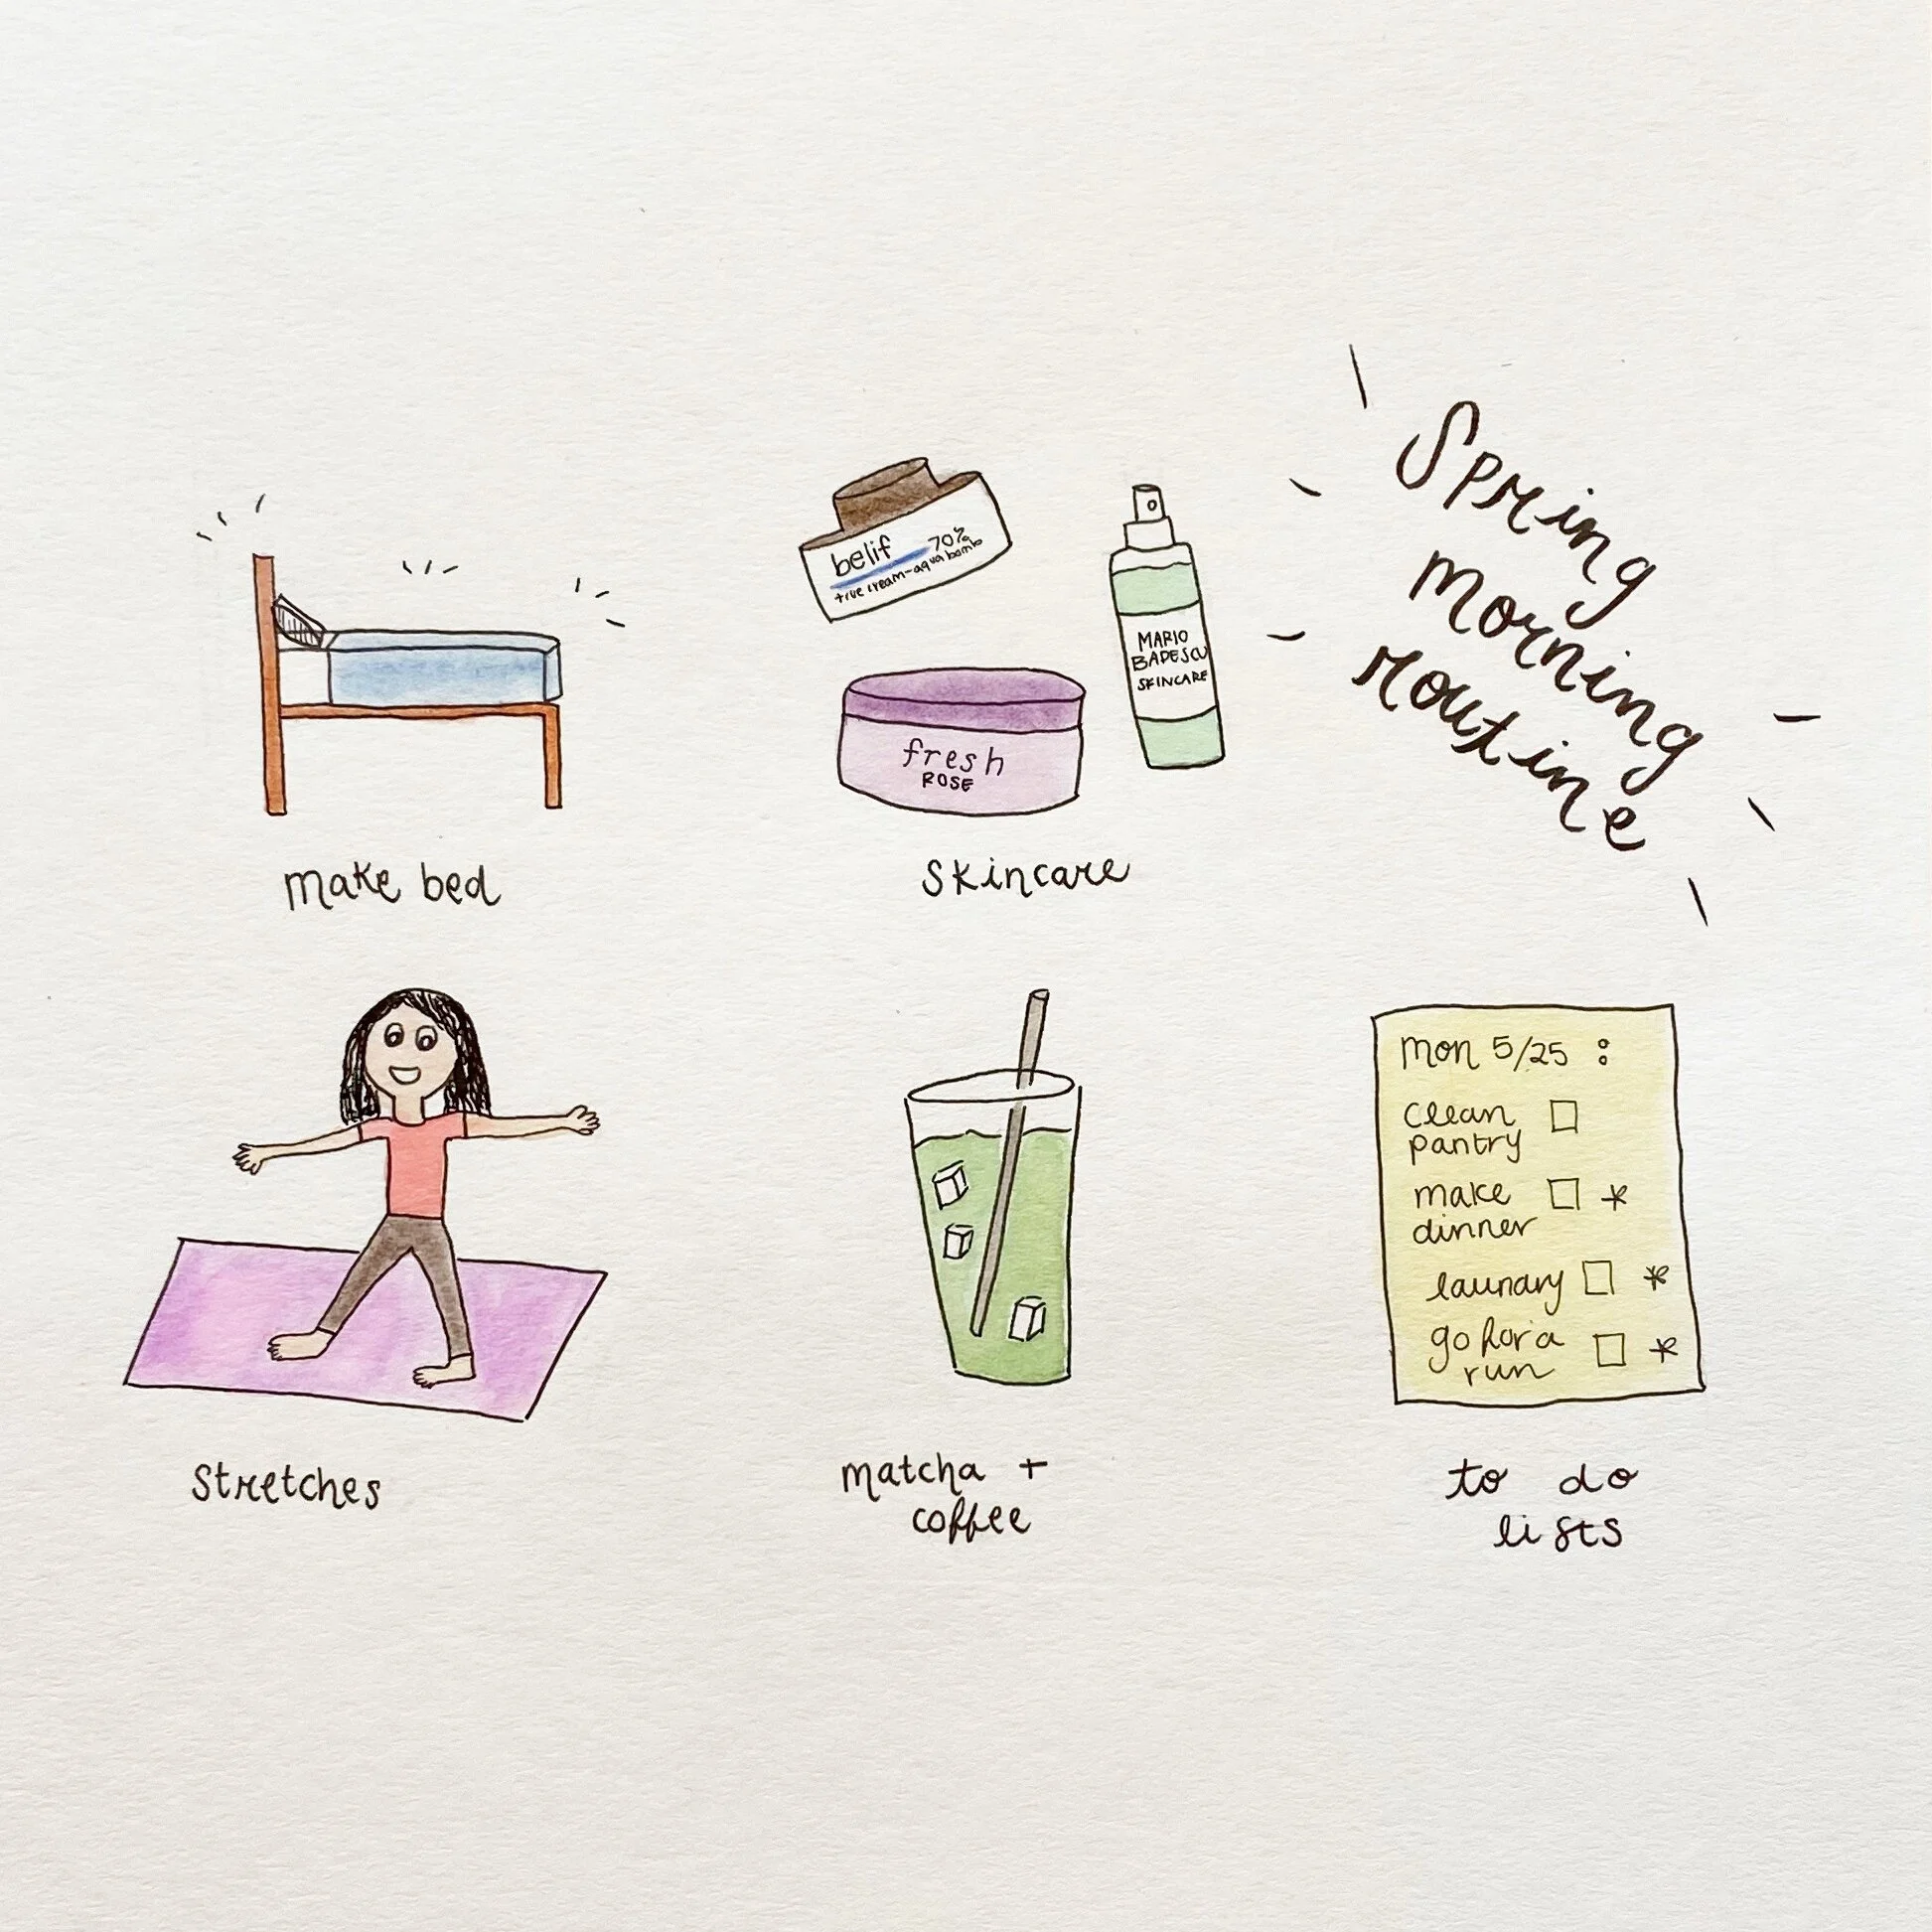 Spring
morning
routine
belif 70%
true cream-aqua bomb
MARIO
BADESCU
SKINCARE
fresh
ROSE
make bed
skincare
mon 5/25 :
clean
pantry
make
dinner *
laundry *
go for a
run *
stretches
matcha +
coffee
to do
lists